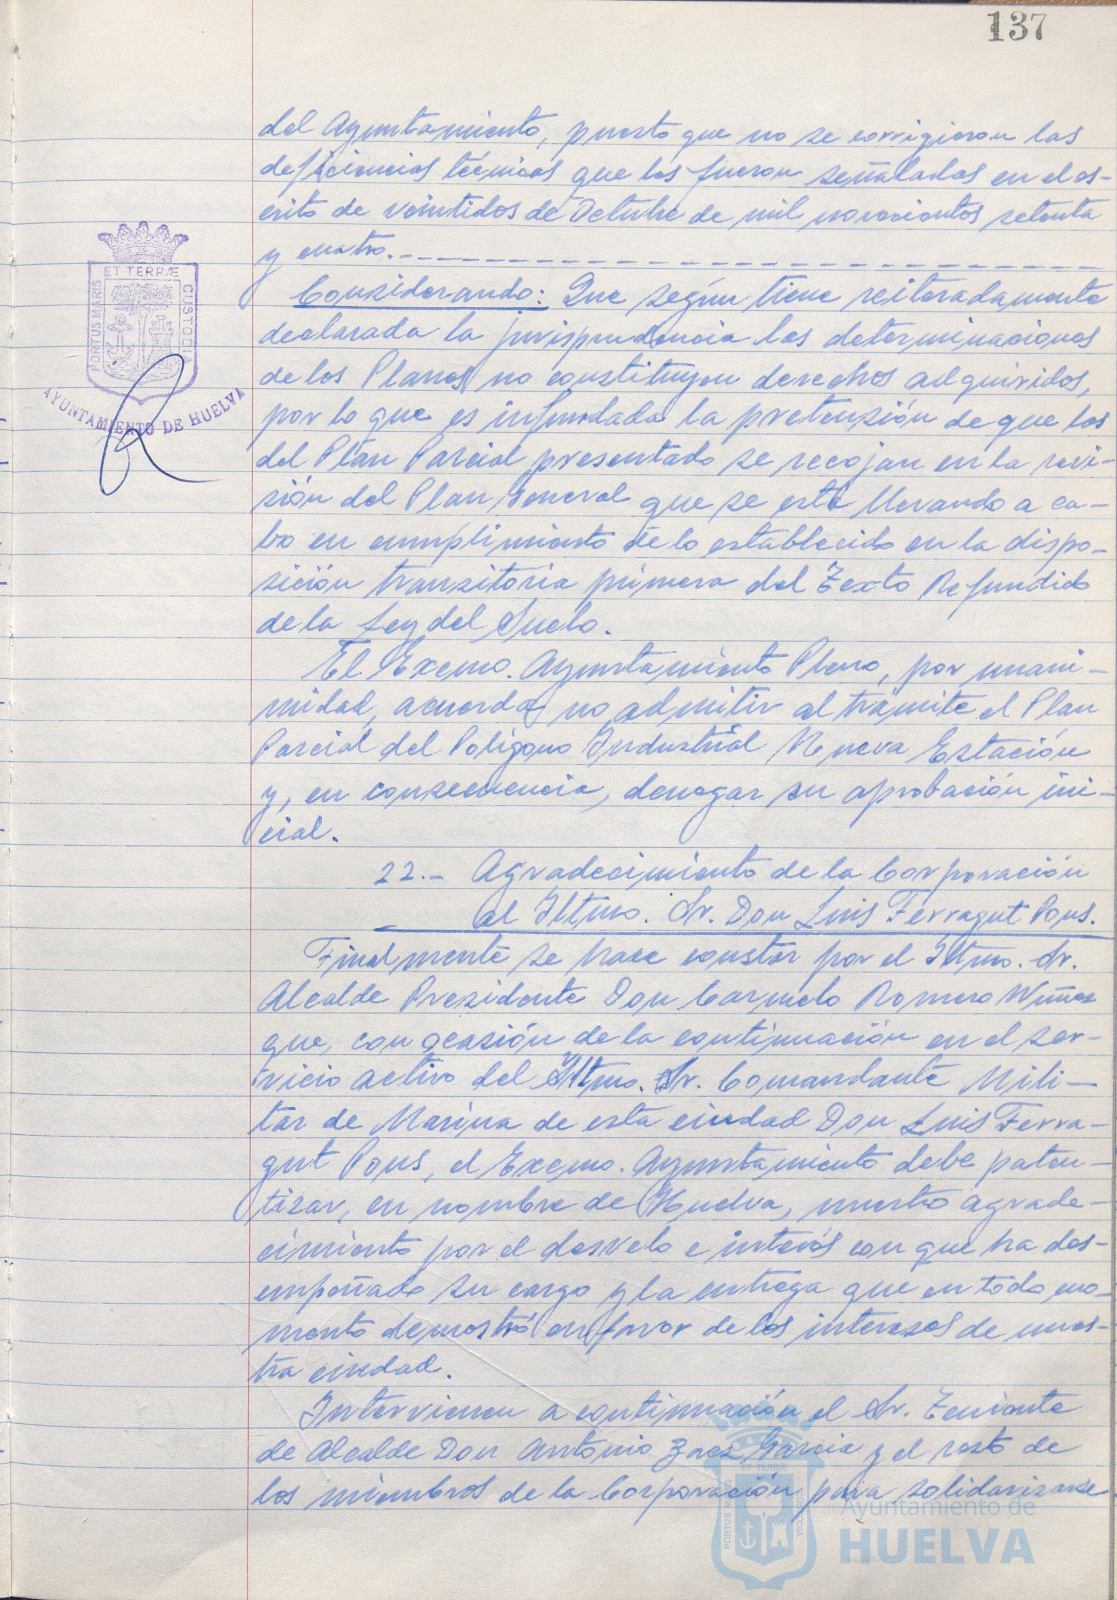 137
del Ayuntamiento, puesto que no se corrigieron las
deficiencias técnicas que les fueron señaladas en el es-
crito de veintidos de Octubre de mil novecientos setenta
y cuatro.
Considerando: Que según tiene reiteradamente
declarada la jurisprudencia las determinaciones
de los Planes no constituyen derechos adquiridos,
por lo que es infundada la pretensión de que los
del Plan Parcial presentado se recojan en la revi-
sión del Plan General que se está llevando a ca-
bo en cumplimiento de lo establecido en la dispo-
sición transitoria primera del Texto Refundido
de la Ley del Suelo.
El Excmo. Ayuntamiento Pleno, por unani-
midad, acuerda no admitir al trámite el Plan
Parcial del Polígono Industrial Nueva Estación
y, en consecuencia, denegar su aprobación ini-
cial.
22.- Agradecimiento de la Corporación
al Iltmo. Sr. Don Luis Ferragut Pons.
Finalmente se hace constar por el Iltmo. Sr.
Alcalde Presidente Don Carmelo Romero Núñez
que, con ocasión de la continuación en el ser-
vicio activo del Iltmo. Sr. Comandante Mili-
tar de Marina de esta ciudad Don Luis Ferra-
gut Pons, el Excmo. Ayuntamiento debe paten-
tizar, en nombre de Huelva, nuestro agrade-
cimiento por el desvelo e interés con que ha des-
empeñado su cargo y la entrega que en todo mo-
mento demostró en favor de los intereses de nues-
tra ciudad.
Intervienen a continuación el Sr. Teniente
de Alcalde Don Antonio Baez Garcia y el resto de
los miembros de la Corporación para solidarizarse
PORTUS MARIS ET TERRÆ CUSTODIA
AYUNTAMIENTO DE HUELVA
PORTUS MARIS ET TERRÆ CUSTODIA
Ayuntamiento de
HUELVA